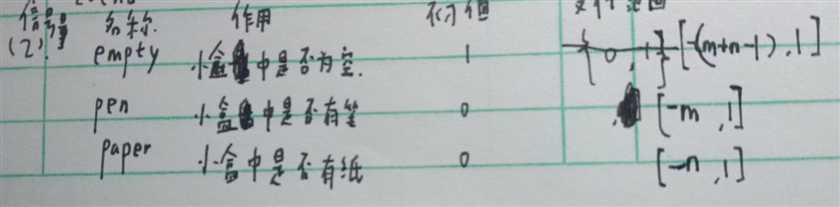 信号 名称 作用 初值
(2) empty 小盒中是否为空. 1 [-(m+n-1),1]
pen 小盒中是否有笔 0 [-m,1]
paper 小盒中是否有纸 0 [-n,1]